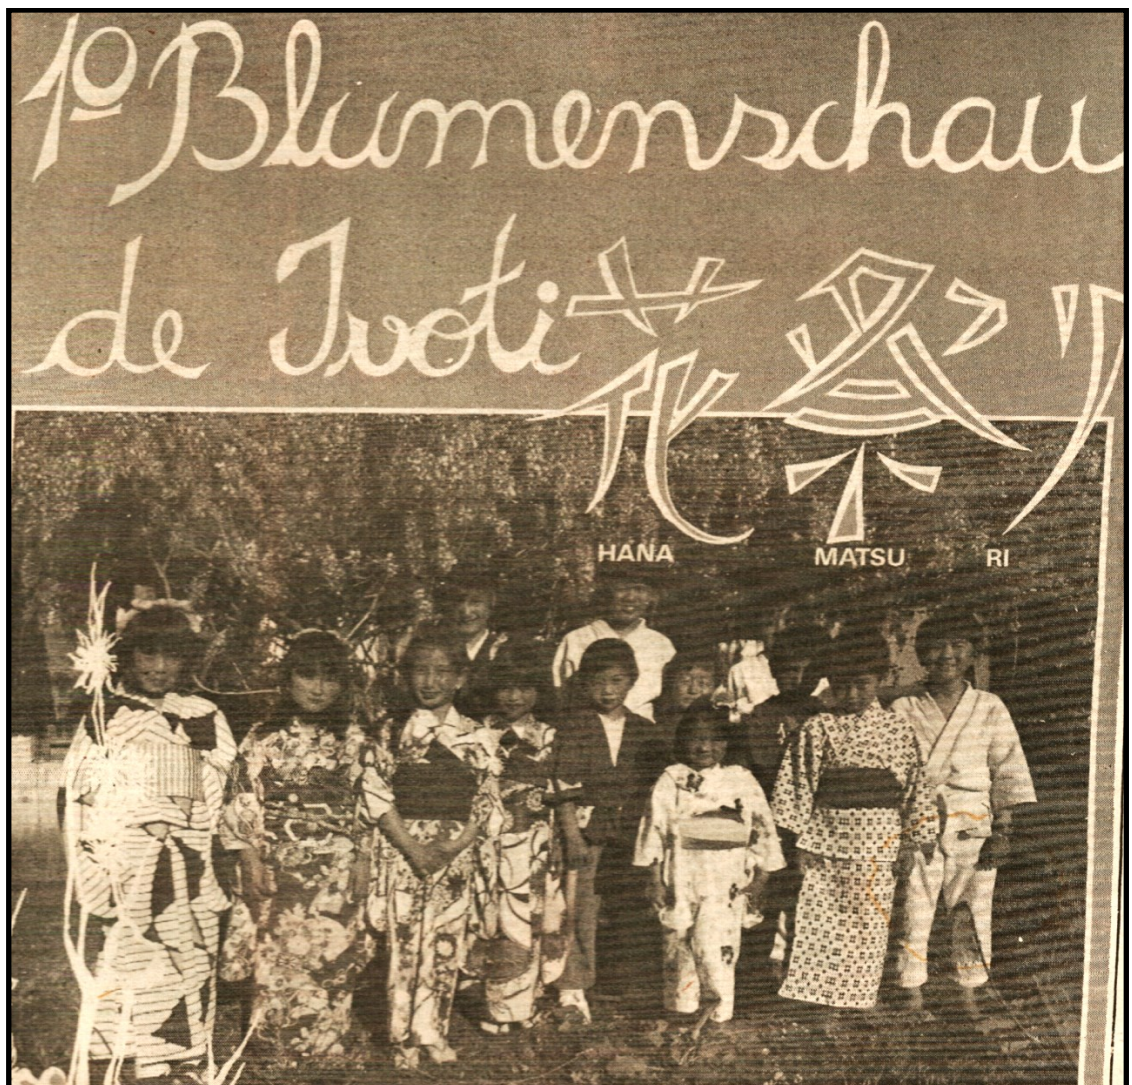 1º Blumenschau
de Ivoti 花祭り
HANA MATSU RI